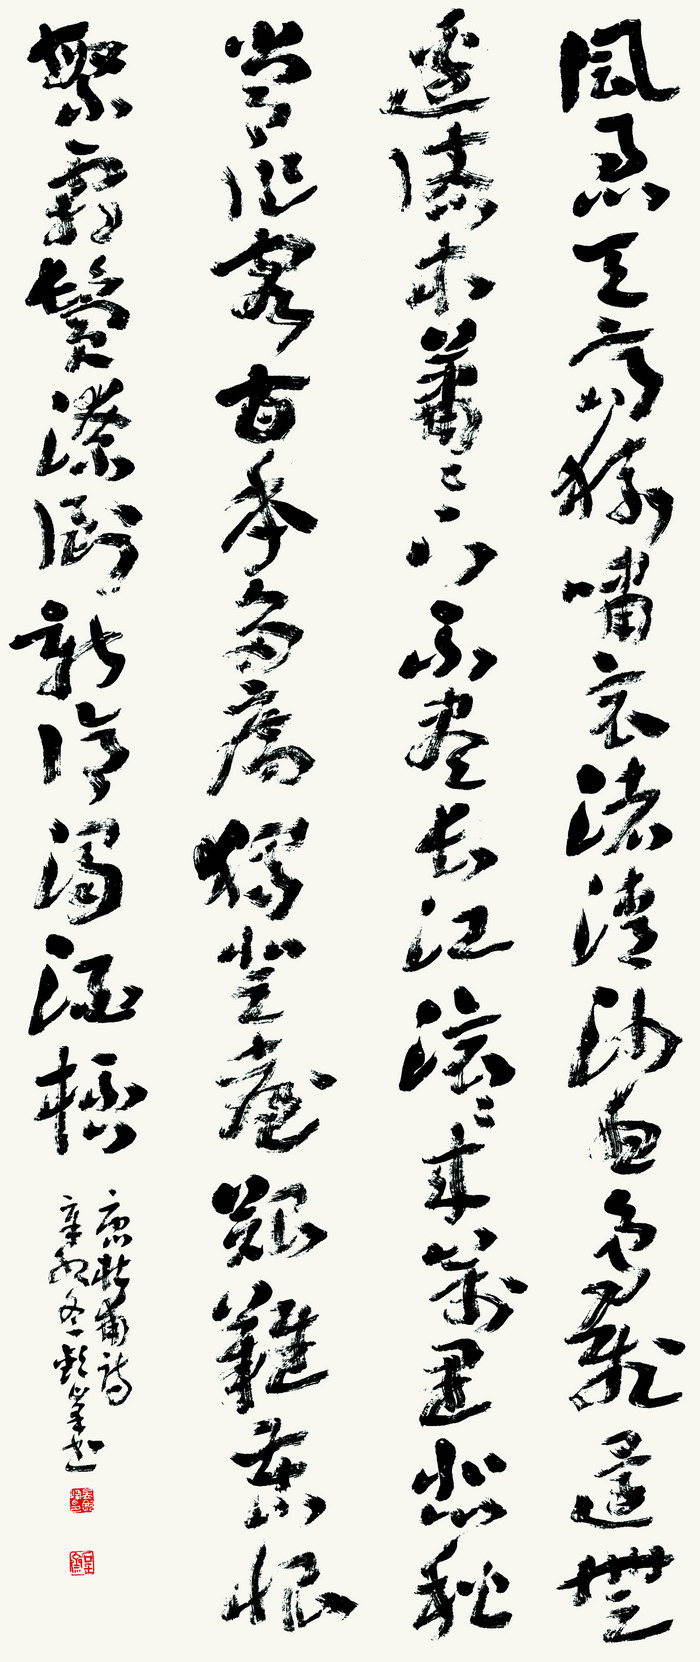 風急天高猿嘯哀渚清沙白鳥飛還無
邊落木蕭々下不盡長江滾々來萬里悲秋
常作客百年多病獨登臺艱難苦恨
繁霜鬢潦倒新停濁酒杯
唐杜甫詩
辛卯冬